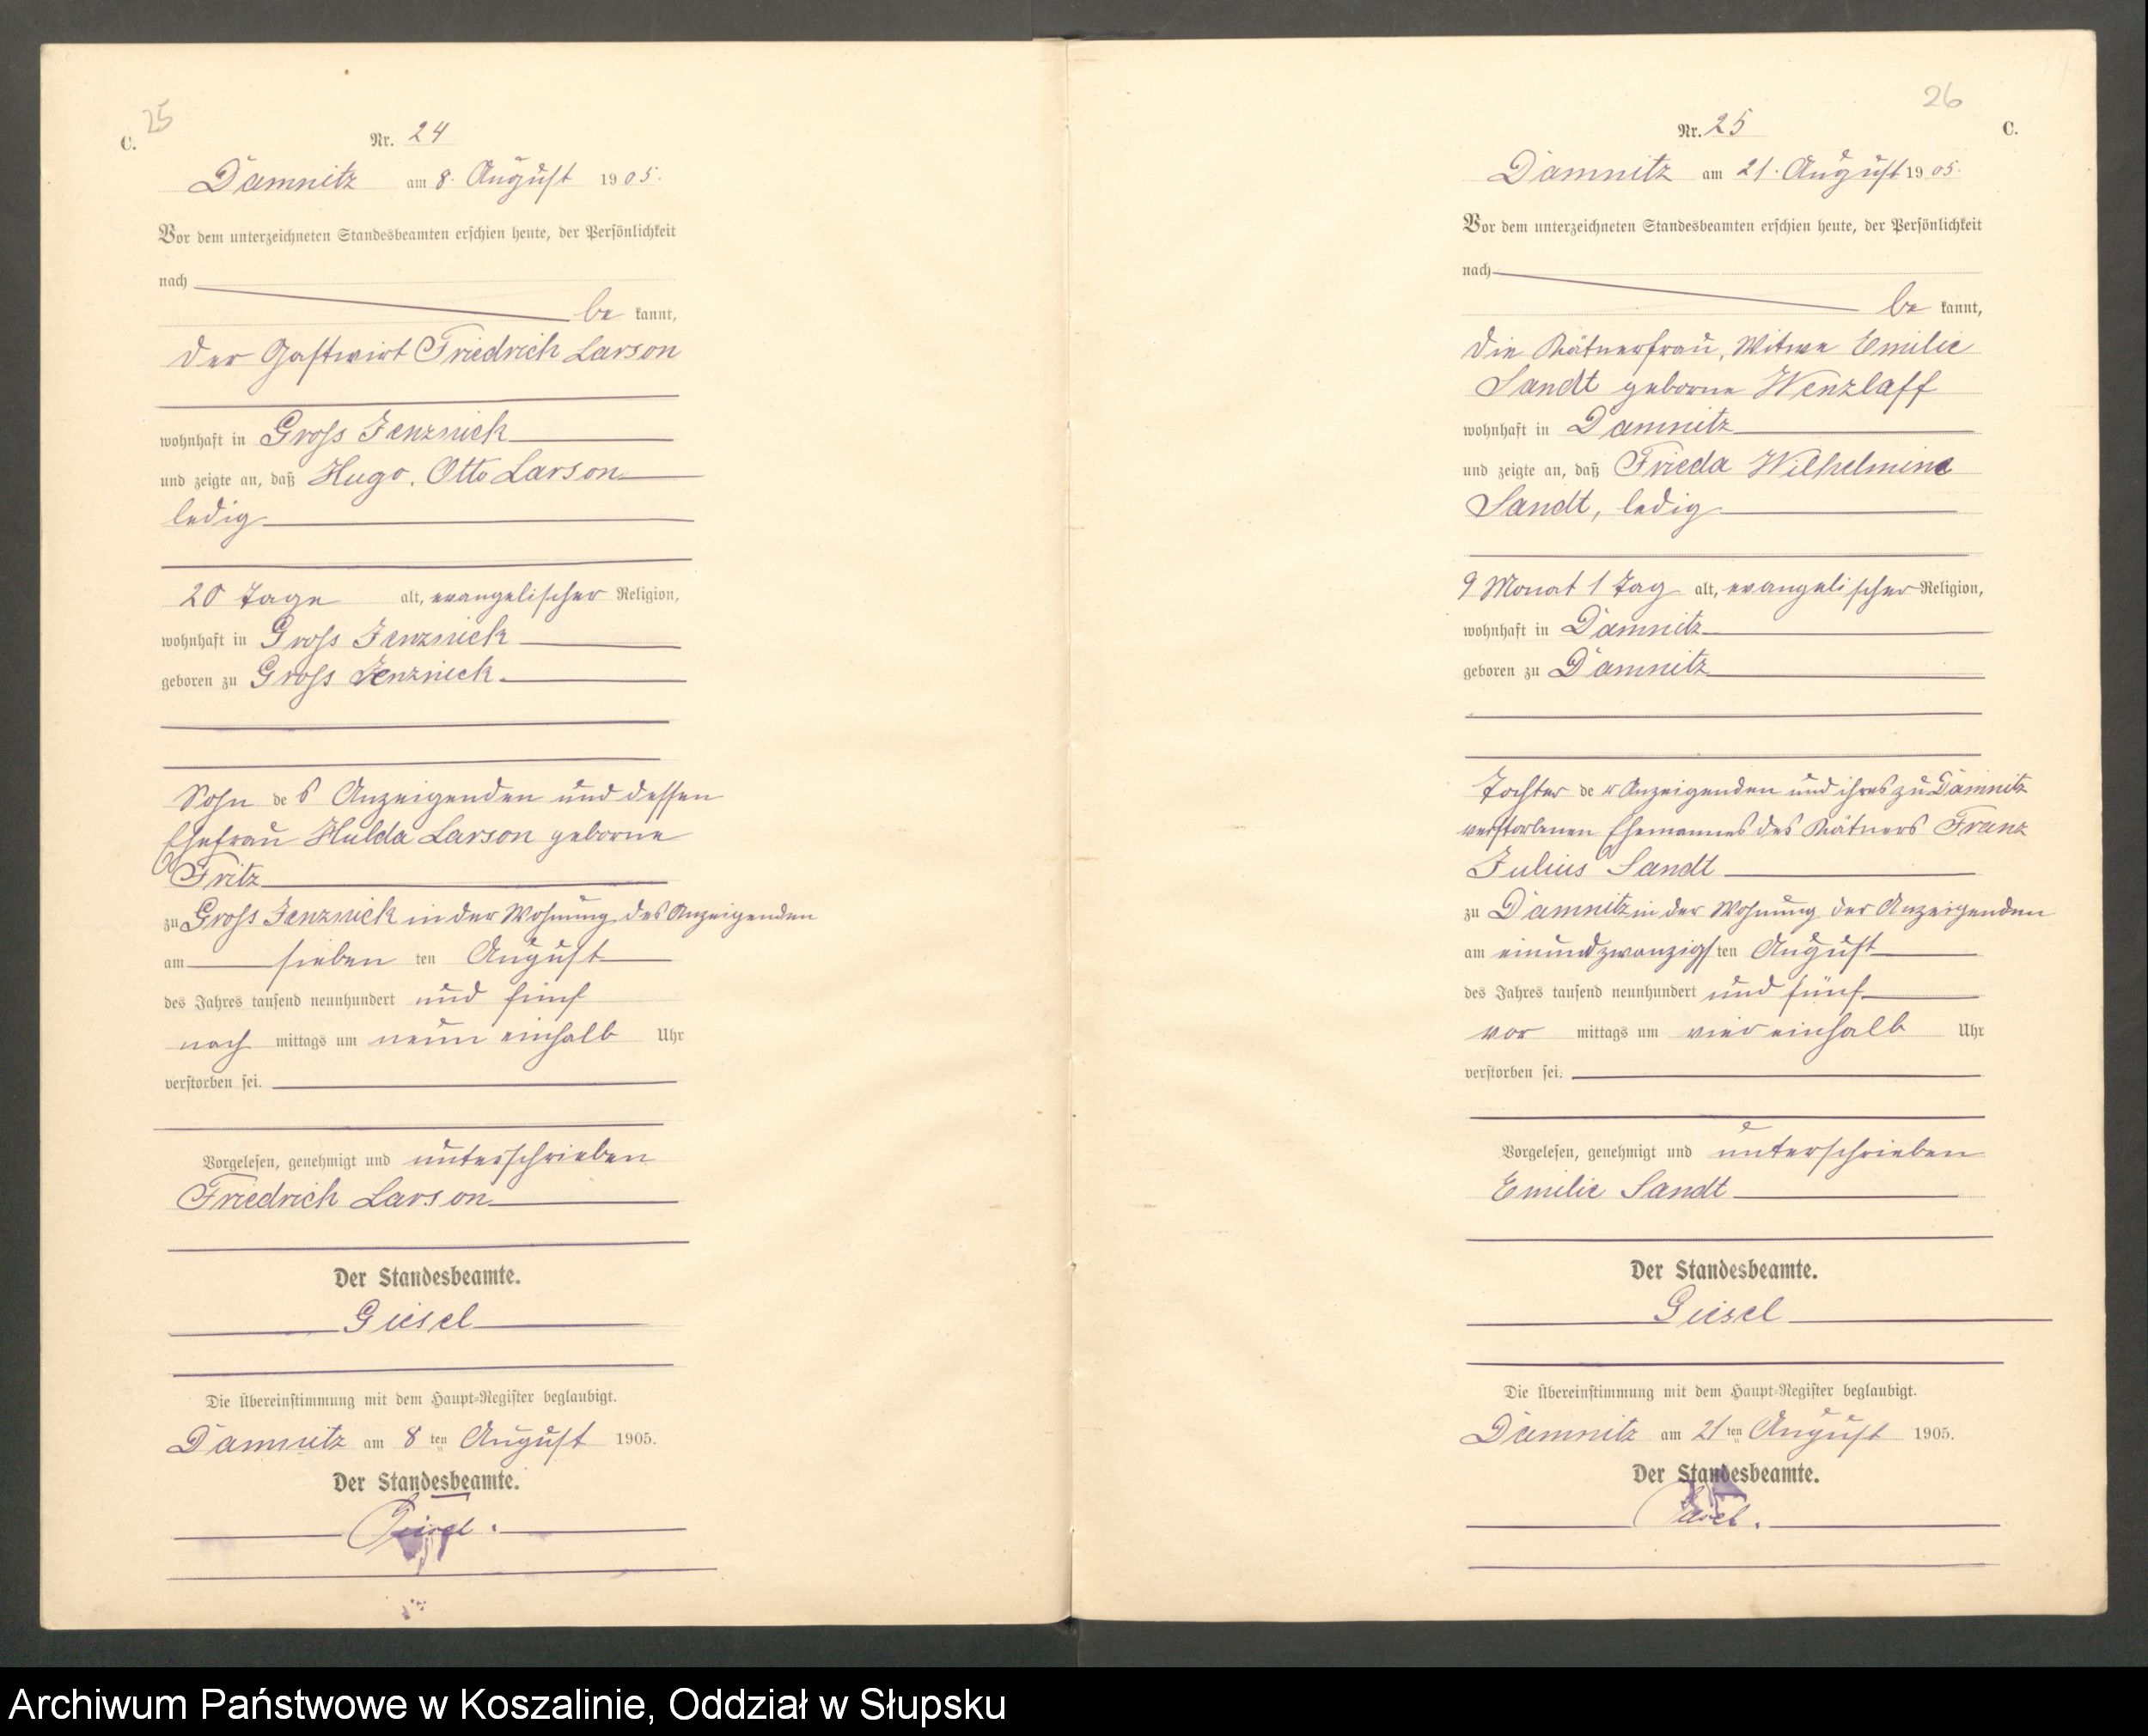 25
C.
Nr. 24
Damnitz am 8. August 1905.
Vor dem unterzeichneten Standesbeamten erschien heute, der Persönlichkeit
nach
be kannt,
der Gastwirt Friedrich Larson
wohnhaft in Gross Jenznick
und zeigte an, daß Hugo Otto Larson
ledig
20 Tage alt, evangelischer Religion,
wohnhaft in Gross Jenznick
geboren zu Gross Jenznick
Sohn des Anzeigenden und dessen
Ehefrau Hulda Larson geborne
Fritz
zu Gross Jenznick in der Wohnung des Anzeigenden
am sieben ten August
des Jahres tausend neunhundert und fünf
nach mittags um neun einhalb Uhr
verstorben sei.
Vorgelesen, genehmigt und unterschrieben
Friedrich Larson
Der Standesbeamte.
Giesel
Die Übereinstimmung mit dem Haupt-Register beglaubigt.
Damnitz am 8 ten August 1905.
Der Standesbeamte.
Giesel.
26
Nr. 25
C.
Damnitz am 21. August 1905.
Vor dem unterzeichneten Standesbeamten erschien heute, der Persönlichkeit
nach
be kannt,
die Kätnerfrau, Witwe Emilie
Sandt geborne Wenzlaff
wohnhaft in Damnitz
und zeigte an, daß Frieda Wilhelmine
Sandt, ledig
9 Monat 1 Tag alt, evangelischer Religion,
wohnhaft in Damnitz
geboren zu Damnitz
Tochter der Anzeigenden und ihres zu Damnitz
verstorbenen Ehemannes des Kätners Franz
Julius Sandt
zu Damnitz in der Wohnung der Anzeigenden
am einundzwanzigsten August
des Jahres tausend neunhundert und fünf
vor mittags um vier einhalb Uhr
verstorben sei.
Vorgelesen, genehmigt und unterschrieben
Emilie Sandt
Der Standesbeamte.
Giesel
Die Übereinstimmung mit dem Haupt-Register beglaubigt.
Damnitz am 21 ten August 1905.
Der Standesbeamte.
Giesel.
Archiwum Państwowe w Koszalinie, Oddział w Słupsku